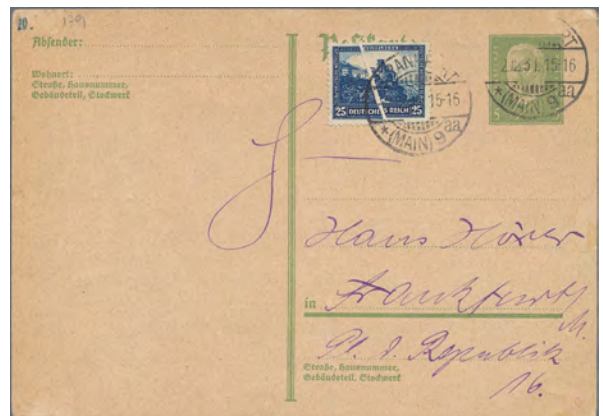 20. 1391
Absender:
Postkarte
Wohnort:
Straße, Hausnummer,
Gebäudeteil, Stockwerk
25 DEUTSCHES REICH 25
15-16
*(MAIN) 9 aa
31. 15-16
*(MAIN) 9 aa
5
Hans Hörer
in Frankfurt
M.
Pl. d. Republik
16.
Straße, Hausnummer,
Gebäudeteil, Stockwerk